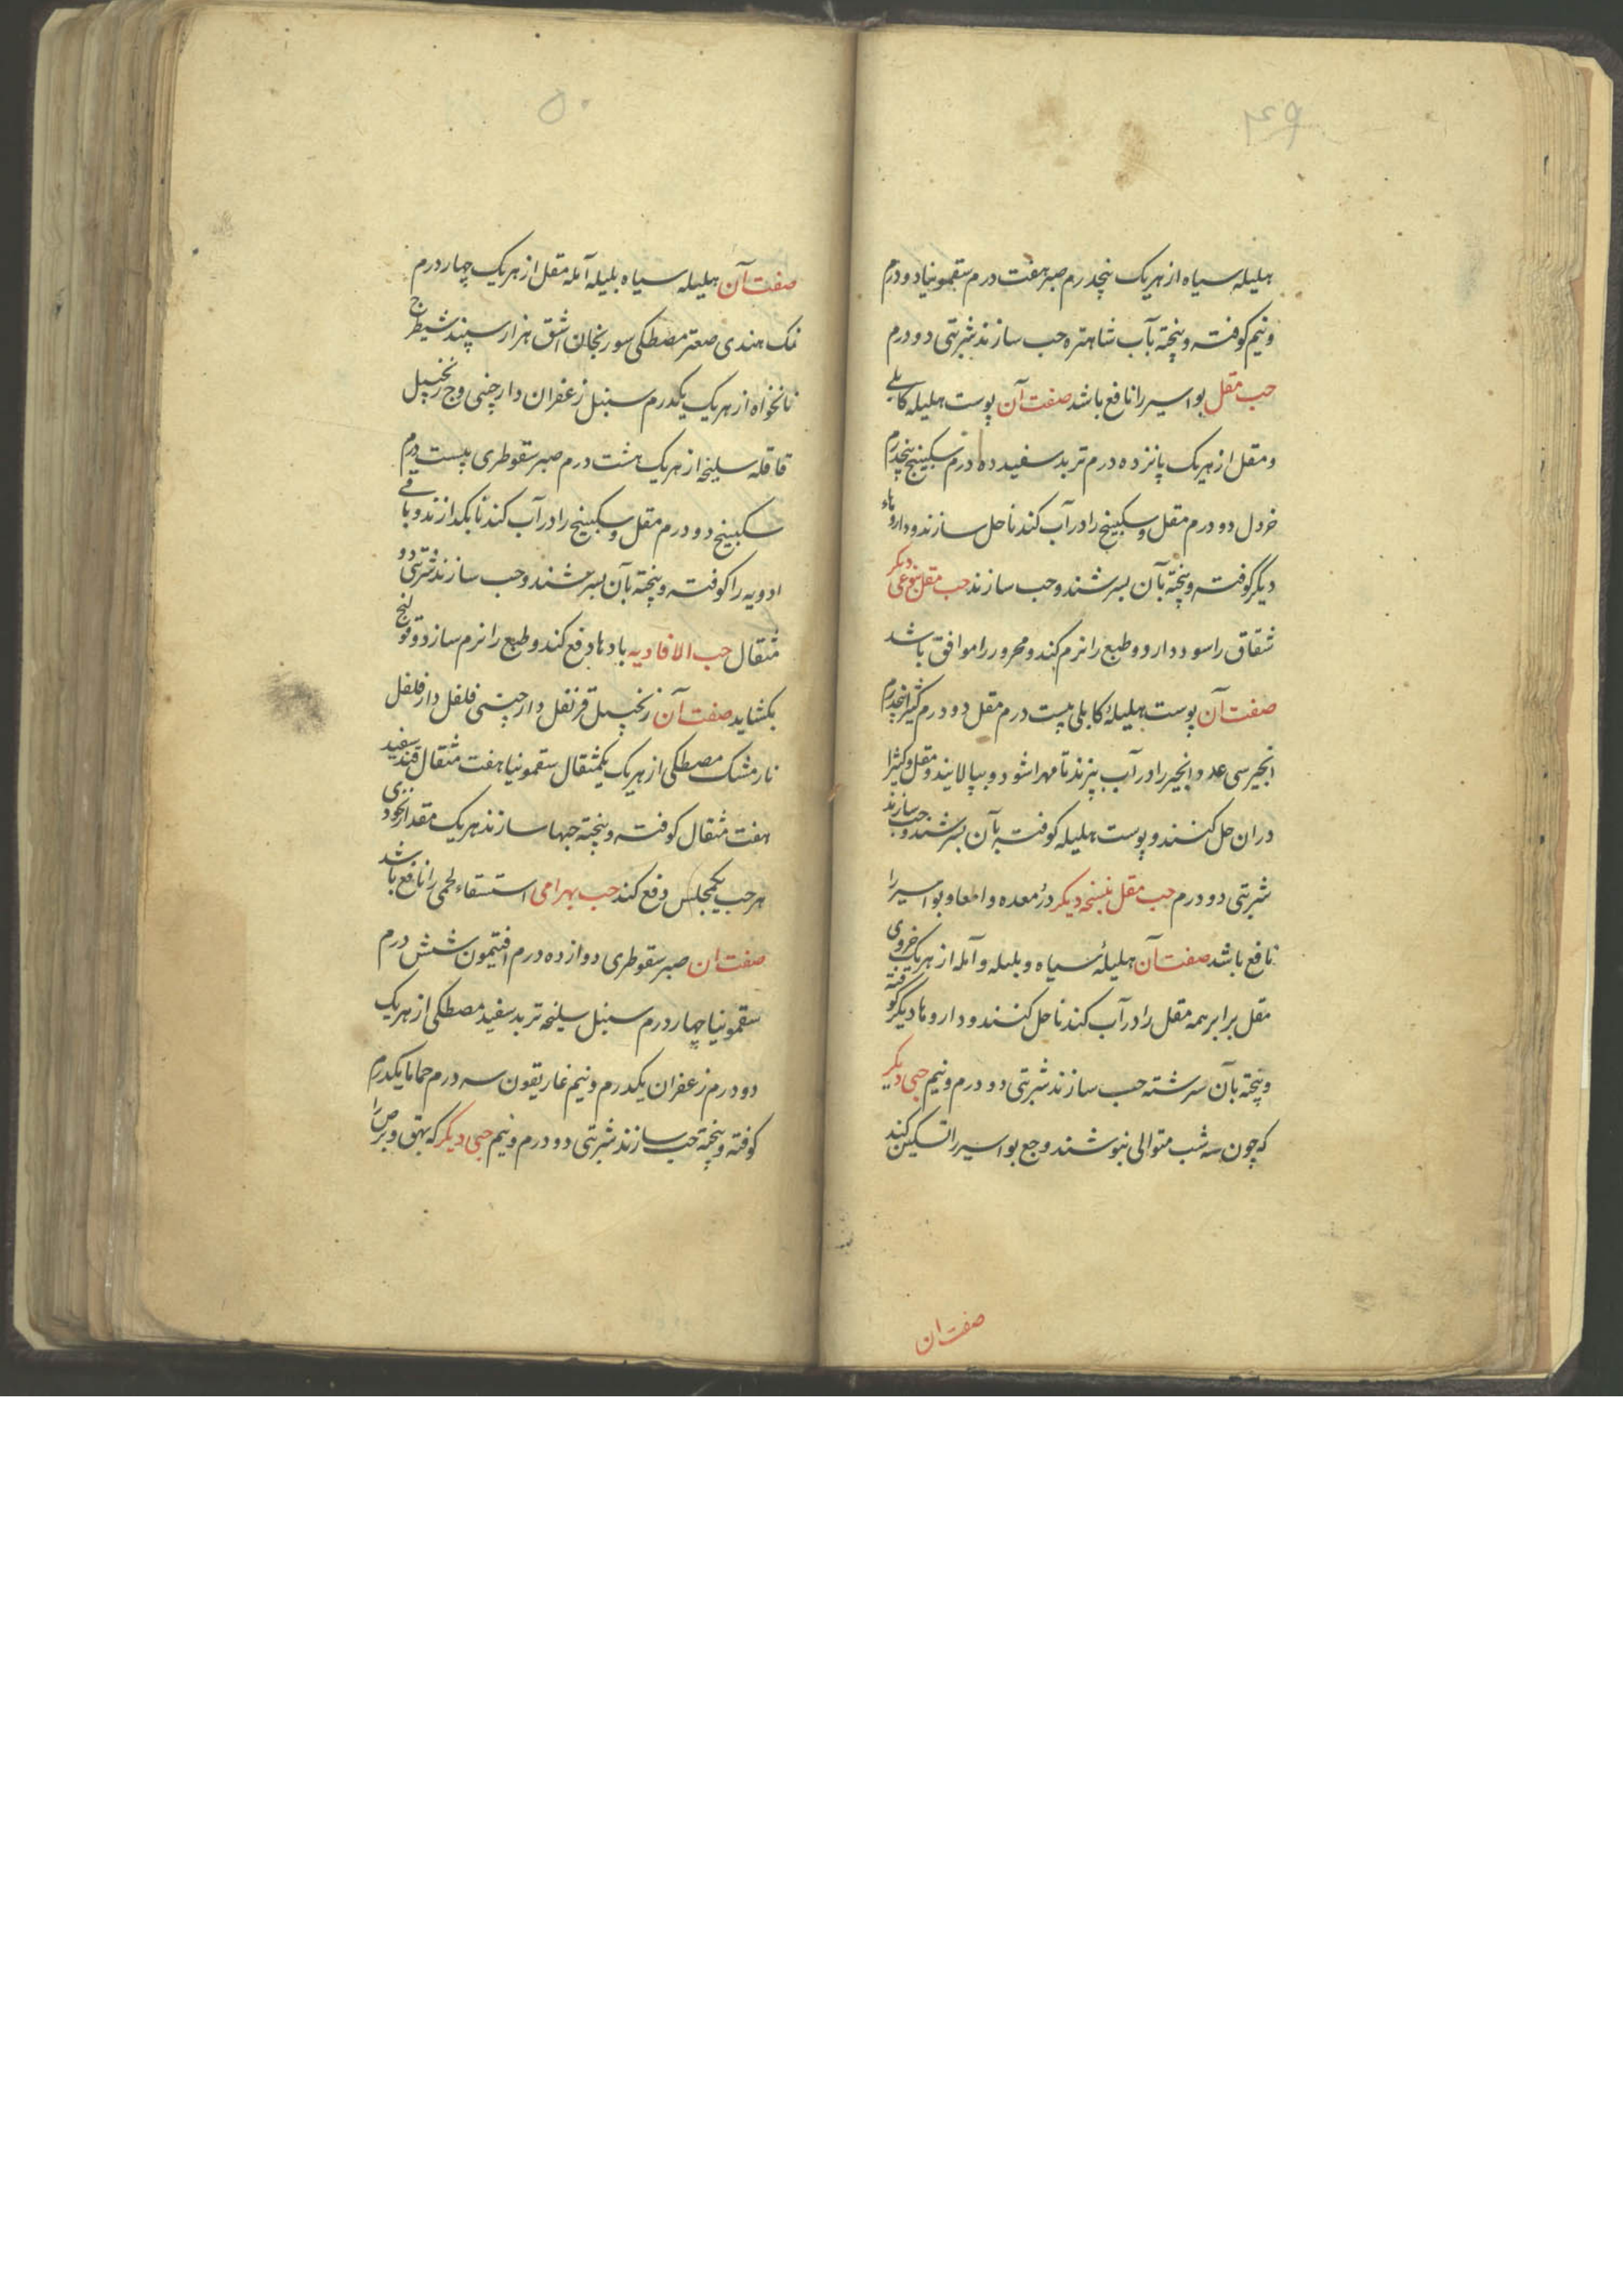 ۴۹
هلیله سیاه از هریک پنجدرم صبر هفت درم سقمونیا دو درم
و نیم کوفته و پخته بآب شاهتره حب سازند شربتی دو درم
حب مقل بواسیر را نافع باشد صفت آن پوست هلیله کابلی
و مقل از هریک پانزده درم تربد سفید ده درم سکبینج پنجدرم
خردل دو درم مقل و سکبینج را در آب کند تا حل سازند و داروهاء
دیگر کوفته و پخته بآن بسرشند و حب سازند حب مقل بنوعی دیگر
شقاق را سود دارد و طبع را نرم کند و محرور را موافق باشد
صفت آن پوست هلیلهٔ کابلی بیست درم مقل دو درم کثیرا پنجدرم
انجیر سی عدد انجیر را در آب بپزند تا مهرا شود و بپالایند و مقل و کثیرا
دران حل کنند و پوست هلیله کوفته بآن بسرشند و حب سازند
شربتی دو درم حب مقل بنسخه دیگر درد معده و امعا و بواسیر را
نافع باشد صفت آن هلیلهٔ سیاه و بلیله و آمله از هریک جزوی
مقل برابر همه مقل را در آب کند تا حل کنند و داروها دیگر کوفته
و پخته بآن سرشته حب سازند شربتی دو درم و نیم حبی دیگر
که چون سه شب متوالی بنوشند وجع بواسیر را تسکین کند
صفت ان
۵۰
صفت آن هلیله سیاه بلیله آمله مقل از هریک چهار درم
نمک هندی صعتر مصطکی سورنجان اشق هزار سپند شیطرج
نانخواه از هریک یکدرم سنبل زعفران دارچنی وج زنجبیل
قاقله سلیخه از هریک هشت درم صبر سقوطری بیست درم
سکبینج دو درم مقل و سکبینج را در آب کند تا بگدازند و باقی
ادویه را کوفته و پخته بآن بسرشند و حب سازند شربتی دو
مثقال حب الافاویه بادها دفع کند و طبع را نرم سازد و قولنج
بکشاید صفت آن زنجبیل قرنفل دارچینی فلفل دارفلفل
نارمشک مصطکی از هریک یکمثقال سقمونیا هفت مثقال قند سفید
هفت مثقال کوفته و پخته حبها سازند هریک مقدار نخودی
هر حب یکمجلس دفع کند حب بهرامی استسقاء لحمی را نافع باشد
صفت ان صبر سقوطری دوازده درم افتیمون شش درم
سقمونیا چهار درم سنبل سلیخه تربد سفید مصطکی از هریک
دو درم زعفران یکدرم و نیم غاریقون سه درم حماما یکدرم
کوفته و پخته حب سازند شربتی دو درم و نیم حبی دیگر که بهق و برص را